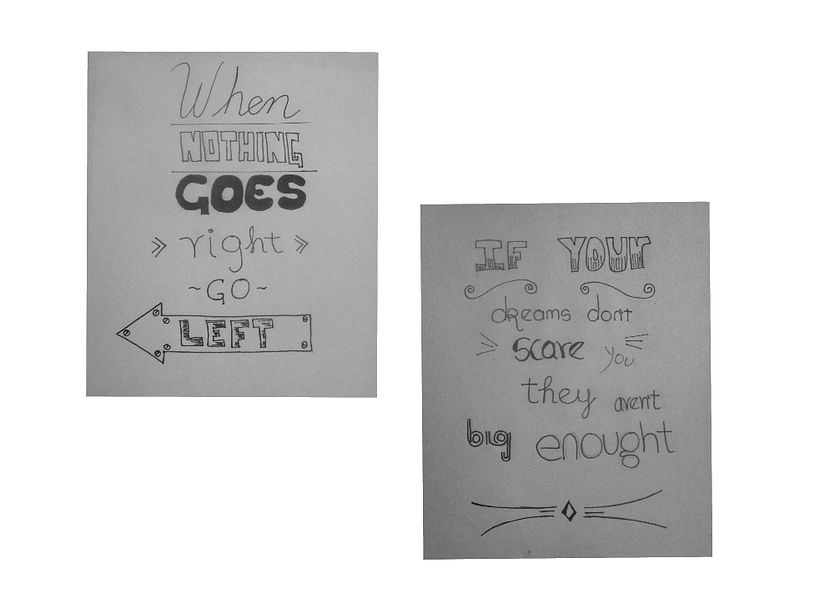 When
NOTHING
GOES
right
~GO~
LEFT
IF YOUR
dreams dont
scare you
they aren't
big enought